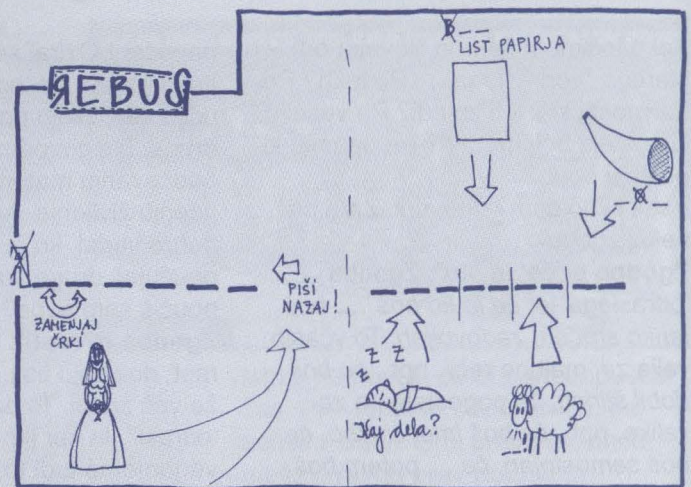 REBUS
B _ _ _
LIST PAPIRJA
PIŠI
NAZAJ!
ZAMENJAJ
ČRKI
Z Z
Z
Kaj dela?